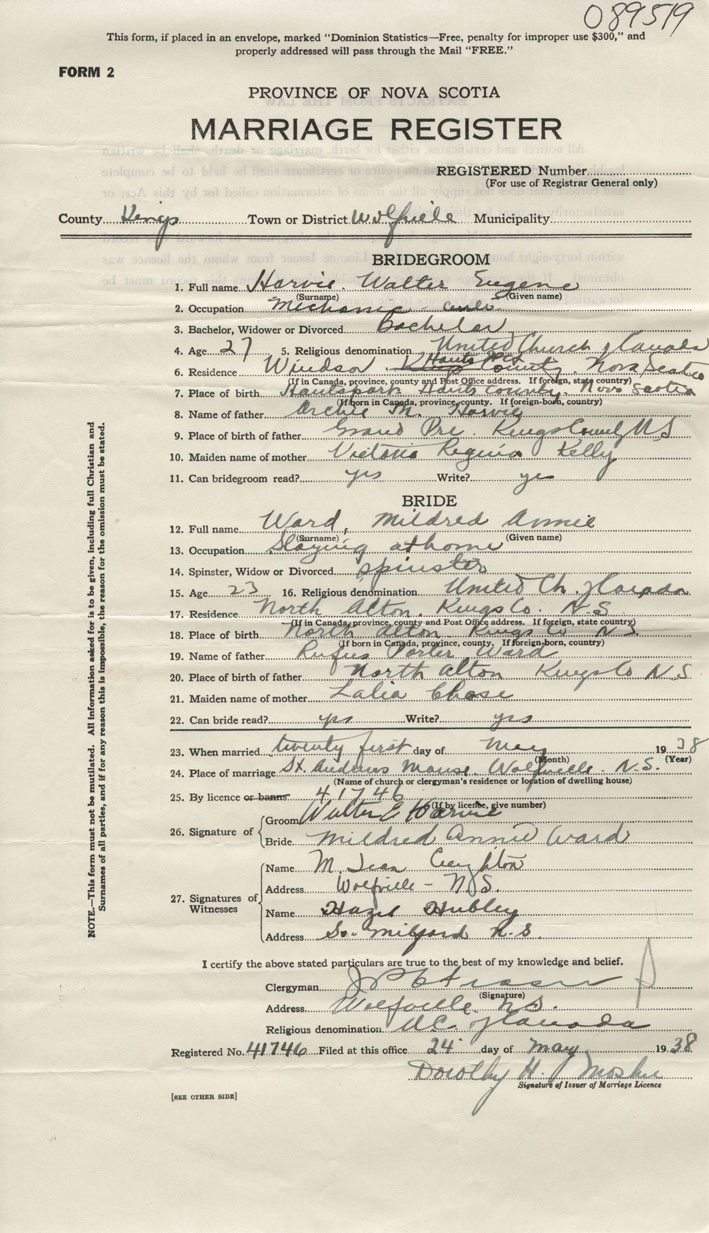 089519
This form, if placed in an envelope, marked "Dominion Statistics—Free, penalty for improper use $300," and
properly addressed will pass through the Mail "FREE."
FORM 2
PROVINCE OF NOVA SCOTIA
MARRIAGE REGISTER
REGISTERED Number
(For use of Registrar General only)
County Kings Town or District Wolfville Municipality
BRIDEGROOM
1. Full name Harvie Walter Eugene
(Surname) (Given name)
2. Occupation Mechanic
3. Bachelor, Widower or Divorced Bachelor
4. Age 27 5. Religious denomination United Church of Canada
6. Residence Windsor Hants County. Nova Scotia
(If in Canada, province, county and Post Office address. If foreign, state country)
7. Place of birth Hantsport Hants County. Nova Scotia
(If born in Canada, province, county. If foreign-born, country)
8. Name of father Archie M. Harvie
9. Place of birth of father Grand Pre. Kings County N S
10. Maiden name of mother Victoria Regina Kelly
11. Can bridegroom read? yes Write? yes
BRIDE
12. Full name Ward, Mildred Annie
(Surname) (Given name)
13. Occupation Staying at home
14. Spinster, Widow or Divorced spinster
15. Age 23 16. Religious denomination United Ch. of Canada
17. Residence North Alton. Kings Co. N S
(If in Canada, province, county and Post Office address. If foreign, state country)
18. Place of birth North Alton Kings Co N S
(If born in Canada, province, county. If foreign-born, country)
19. Name of father Rufus Porter Ward
20. Place of birth of father North Alton Kings Co N S
21. Maiden name of mother Lalia Chase
22. Can bride read? yes Write? yes
23. When married twenty first day of May 19 38
(Month) (Year)
24. Place of marriage St. Andrews Manse Wolfville. N.S.
(Name of church or clergyman's residence or location of dwelling house)
25. By licence or banns 41746
(If by licence, give number)
26. Signature of
Groom Walter E Harvie
Bride Mildred Annie Ward
27. Signatures of Witnesses
Name M. Jean Creighton
Address Wolfville - N.S.
Name Hazel Hubley
Address So. Milford N.S.
I certify the above stated particulars are true to the best of my knowledge and belief.
Clergyman Fraser
(Signature)
Address Wolfville N.S.
Religious denomination U.C. of Canada
Registered No. 41746 Filed at this office 24 day of May 19 38
Dorothy H. Mosher
Signature of Issuer of Marriage Licence
[SEE OTHER SIDE]
NOTE.—This form must not be mutilated. All information asked for is to be given, including full Christian and
Surnames of all parties, and if for any reason this is impossible, the reason for the omission must be stated.